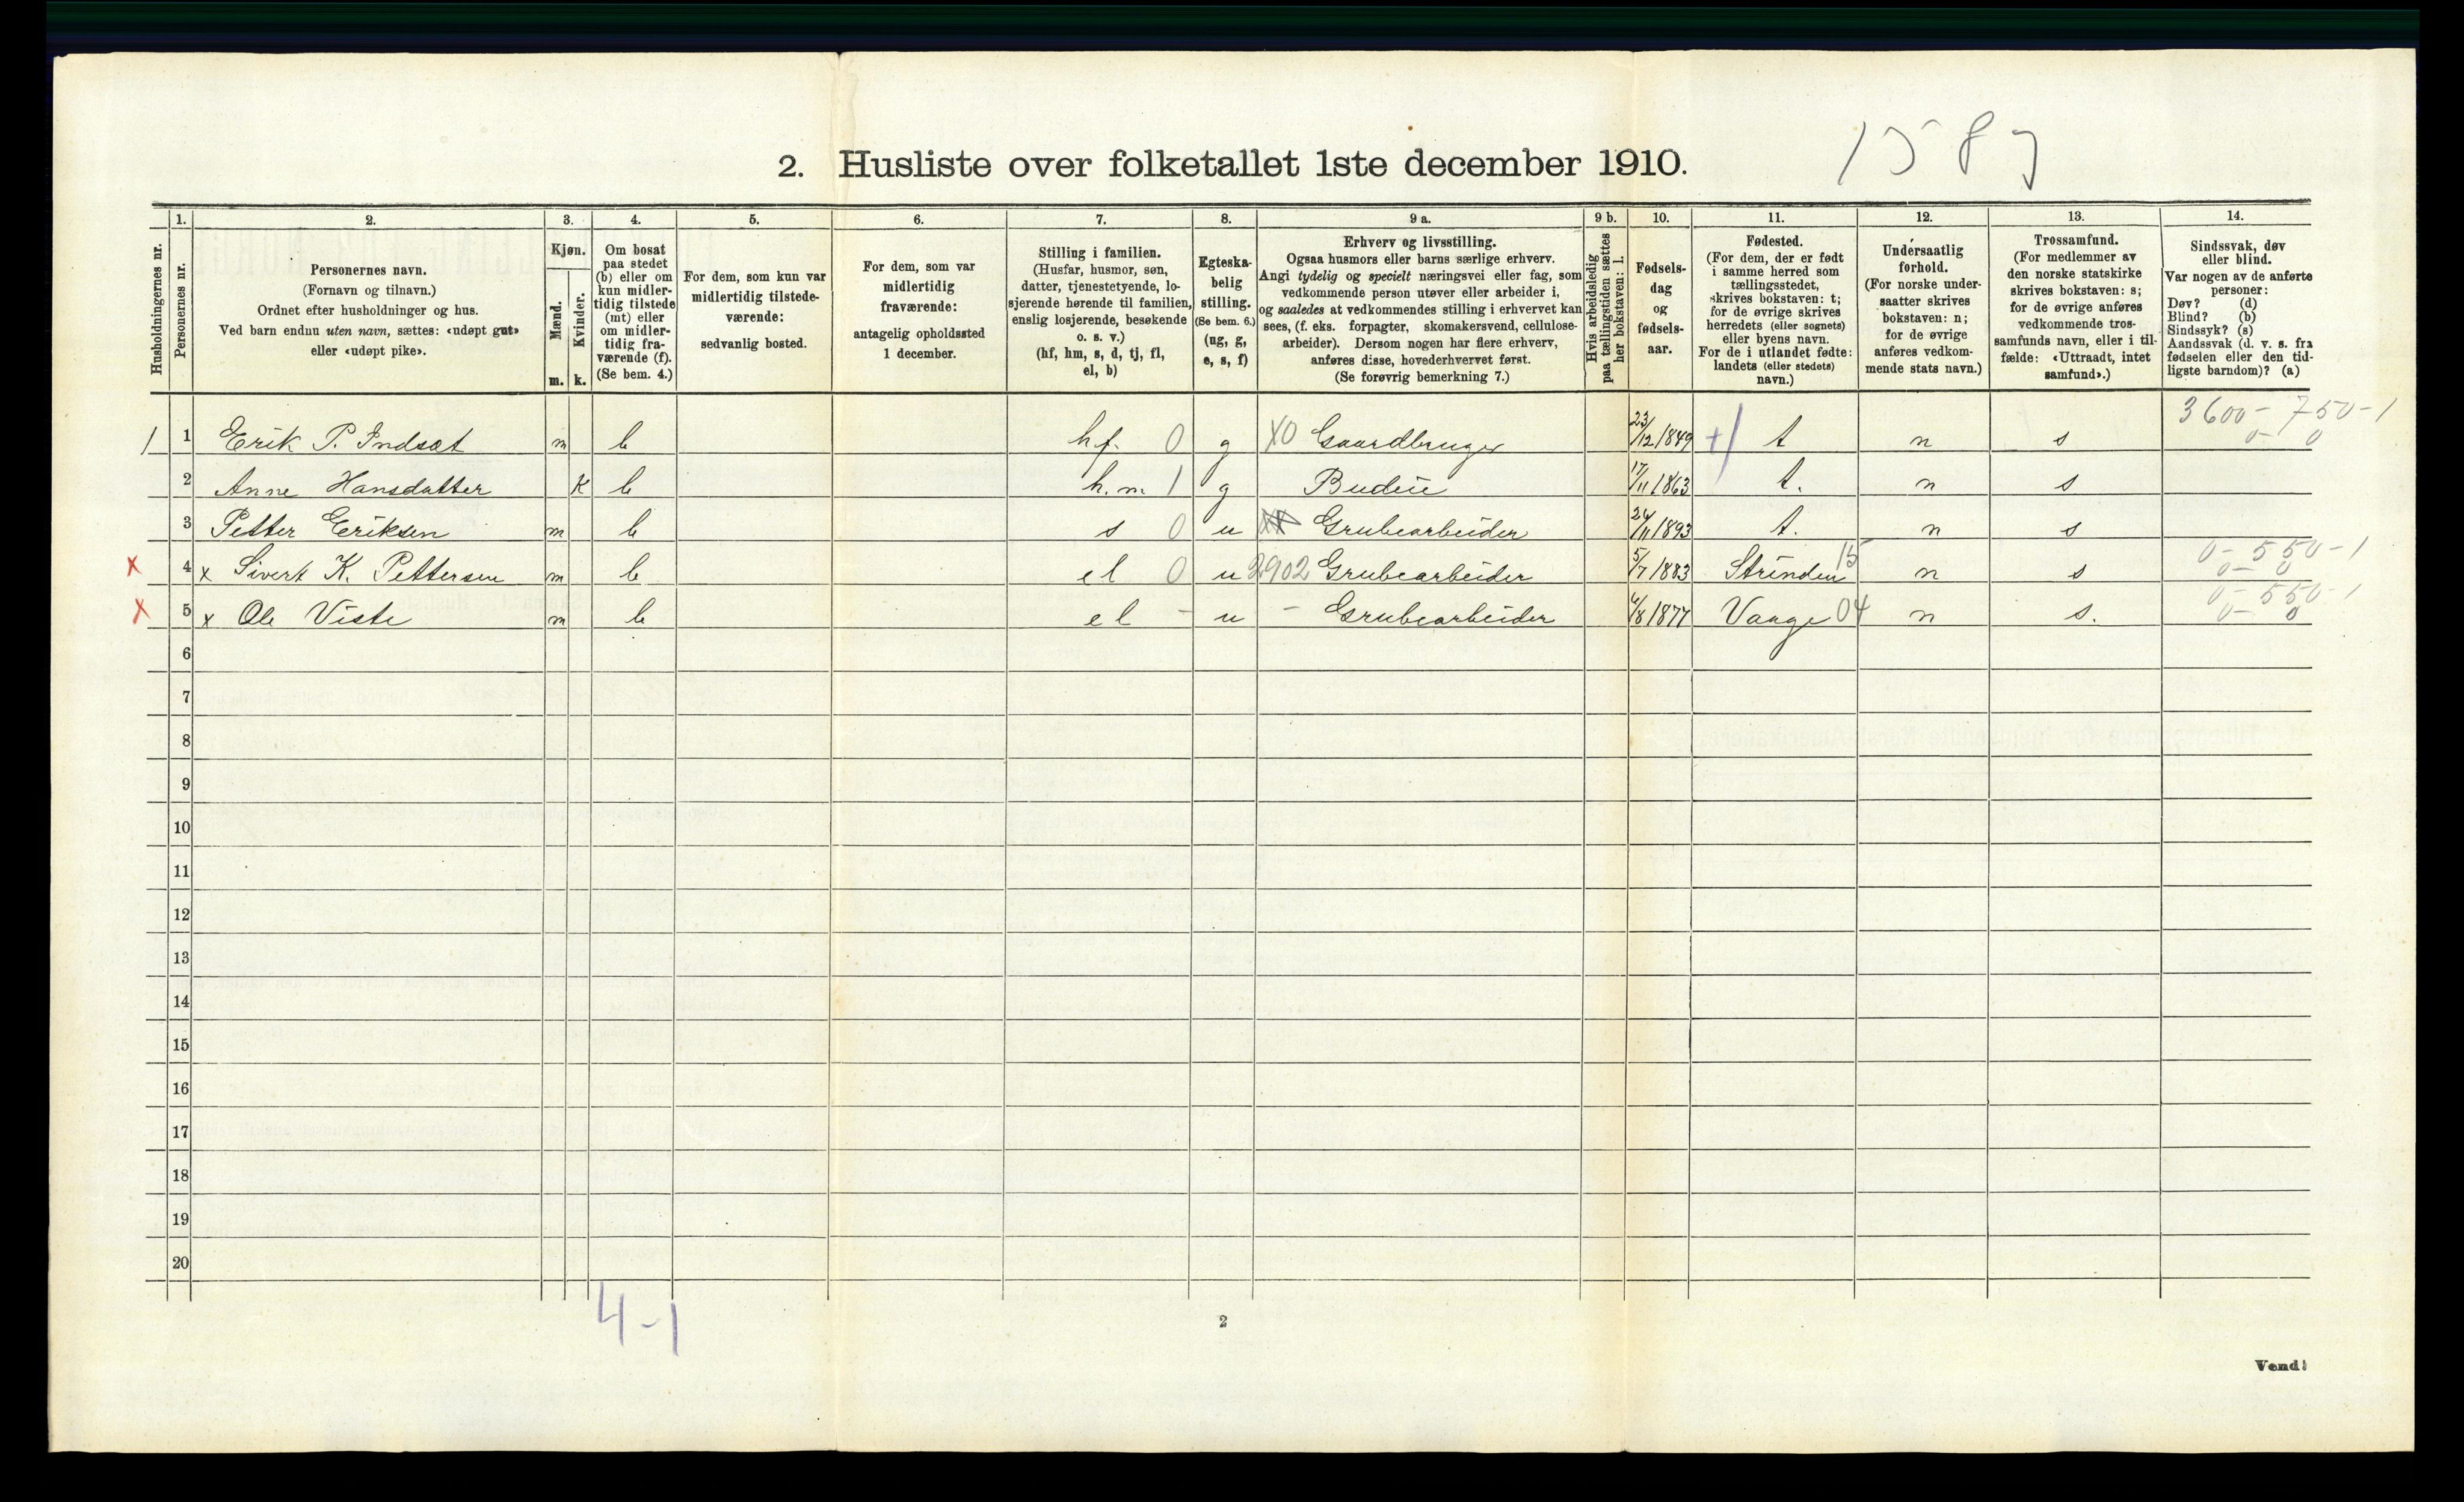 2. Husliste over folketallet 1ste december 1910.
1587
Husholdningernes nr.
1.
Personernes nr.
2.
Personernes navn.
(Fornavn og tilnavn.)
Ordnet efter husholdninger og hus.
Ved barn endnu uten navn, sættes: «udøpt gut»
eller «udøpt pike».
3.
Kjøn.
Mænd.
Kvinder.
m. k.
4.
Om bosat
paa stedet
(b) eller om
kun midler-
tidig tilstede
(mt) eller
om midler-
tidig fra-
værende (f).
(Se bem. 4.)
5.
For dem, som kun var
midlertidig tilstede-
værende:
sedvanlig bosted.
6.
For dem, som var
midlertidig
fraværende:
antagelig opholdssted
1 december.
7.
Stilling i familien.
(Husfar, husmor, søn,
datter, tjenestetyende, lo-
sjerende hørende til familien,
enslig losjerende, besøkende
o. s. v.)
(hf, hm, s, d, tj, fl,
el, b)
8.
Egteska-
belig
stilling.
(Se bem. 6.)
(ug, g,
e, s, f)
9 a.
Erhverv og livsstilling.
Ogsaa husmors eller barns særlige erhverv.
Angi tydelig og specielt næringsvei eller fag, som
vedkommende person utøver eller arbeider i,
og saaledes at vedkommendes stilling i erhvervet kan
sees, (f. eks. forpagter, skomakersvend, cellulose-
arbeider). Dersom nogen har flere erhverv,
anføres disse, hovederhvervet først.
(Se forøvrig bemerkning 7.)
9 b.
Hvis arbeidsledig
paa tællingstiden sættes
her bokstaven: l.
10.
Fødsels-
dag
og
fødsels-
aar.
11.
Fødested.
(For dem, der er født
i samme herred som
tællingsstedet,
skrives bokstaven: t;
for de øvrige skrives
herredets (eller sognets)
eller byens navn.
For de i utlandet fødte:
landets (eller stedets)
navn.)
12.
Undersaatlig
forhold.
(For norske under-
saatter skrives
bokstaven: n;
for de øvrige
anføres vedkom-
mende stats navn.)
13.
Trossamfund.
(For medlemmer av
den norske statskirke
skrives bokstaven: s;
for de øvrige anføres
vedkommende tros-
samfunds navn, eller i til-
fælde: «Uttraadt, intet
samfund».)
14.
Sindssvak, døv
eller blind.
Var nogen av de anførte
personer:
Døv? (d)
Blind? (b)
Sindssyk? (s)
Aandssvak (d. v. s. fra
fødselen eller den tid-
ligste barndom)? (a)
3600- 750-1
1 1 Erik P. Indset m b hf. 0 g X0 Gaardbruger 23/12 1849 t n s 0- 0
2 Anne Hansdatter K b h.m 1 g Budeie 17/11 1863 t. n s
3 Petter Eriksen m b s 0 u Grubearbeider 24/11 1893 t. n s
0- 550-1
x 4 x Sivert K. Pettersen m b el 0 u 2902 Grubearbeider 5/7 1883 Strinden 15 n s 0- 0
0- 550-1
x 5 x Ole Viste m b el - u - Grubearbeider 6/8 1877 Vaage 04 n s. 0- 0
6
7
8
9
10
11
12
13
14
15
16
17
18
19
20
4-1
2
Vend!